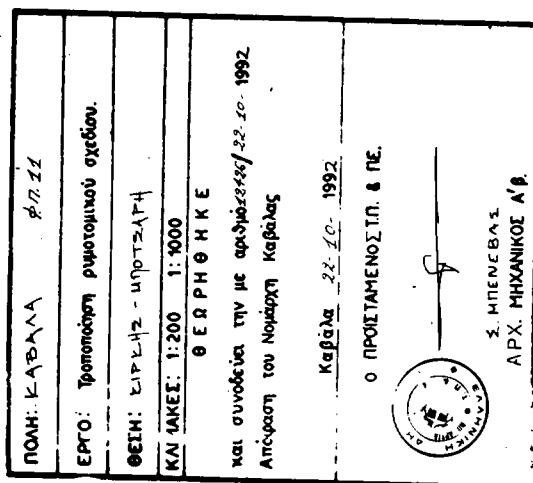 ΠΟΛΗ: ΚΑΒΑΛΑ Φ.Π. 11
ΕΡΓΟ: Τροποποίηση ρυμοτομικού σχεδίου.
ΘΕΣΗ: ΚΙΡΚΗΣ - ΜΠΟΤΣΑΡΗ
ΚΛΙΜΑΚΕΣ: 1:200 1:1000
ΘΕΩΡΗΘΗΚΕ
και συνοδεύει την με αριθμό 22-10-1992
Απόφαση του Νομάρχη Καβάλας
Καβάλα 22-10-1992
Ο ΠΡΟΪΣΤΑΜΕΝΟΣ Τ.Π. & ΠΕ.
ΕΛΛΗΝΙΚΗ
Σ. ΜΠΕΝΕΒΑΣ
ΑΡΧ. ΜΗΧΑΝΙΚΟΣ Α'β.